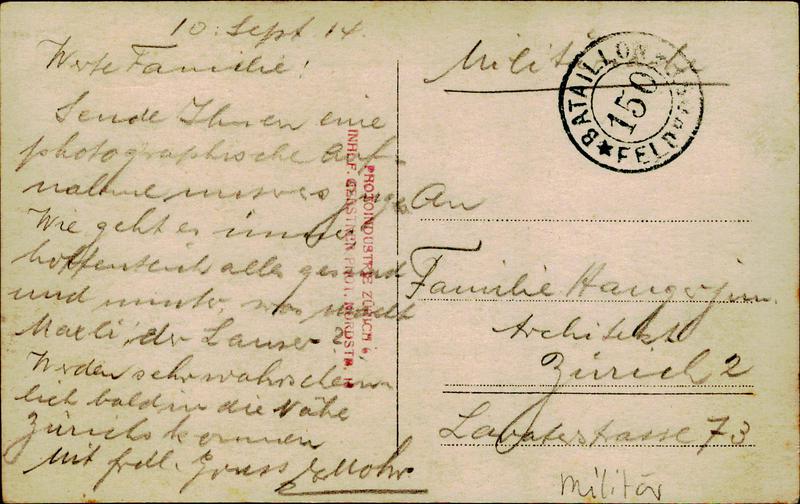 10. Sept. 14.
Werte Familie!
Sende Ihnen eine
photographische Auf-
nahme unseres
Wie geht es immer
hoffentlich alles gesund
und munter, was macht
Maxli, der Lauser?
Werden sehr wahrschein-
lich bald in die Nähe
Zürichs kommen
Mit frdl. Gruss E. Mohr
PHOTOINDUSTRIE ZÜRICH 6,
INH. F. GERSTNER PHOT. NORDSTR.
Militär
BATAILLON
150
FELDPOST
An
Familie Hauser jun.
Architekt
Zürich 2
Lavaterstrasse 73
Militär